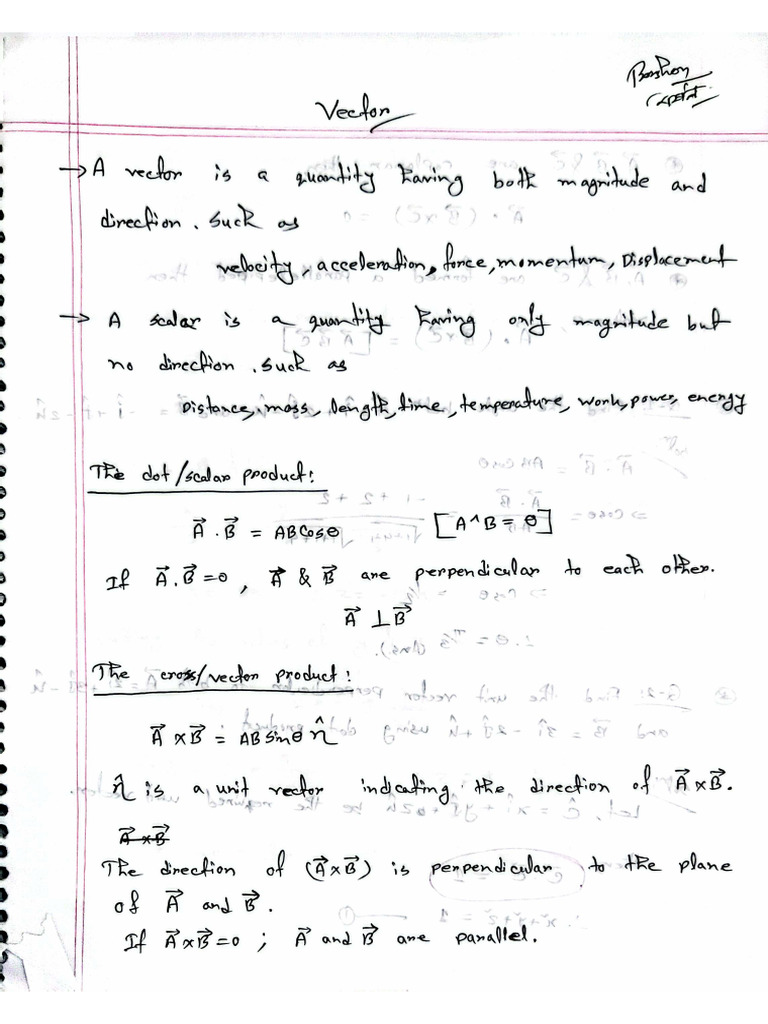 Vector
→ A vector is a quantity having both magnitude and
direction. Such as
velocity, acceleration, force, momentum, Displacement
→ A scalar is a quantity having only magnitude but
no direction. Such as
Distance, mass, length, time, temperature, work, power, energy
The dot/scalar product:
A⃗ . B⃗ = ABcosθ [A^B = θ]
If A⃗.B⃗ = 0, A⃗ & B⃗ are perpendicular to each other.
A⃗ ⊥ B⃗
The cross/vector product:
A⃗ × B⃗ = AB sinθ n̂
n̂ is a unit vector indicating the direction of A⃗ × B⃗.
A⃗ × B⃗
The direction of (A⃗ × B⃗) is perpendicular to the plane
of A⃗ and B⃗.
If A⃗ × B⃗ = 0 ; A⃗ and B⃗ are parallel.